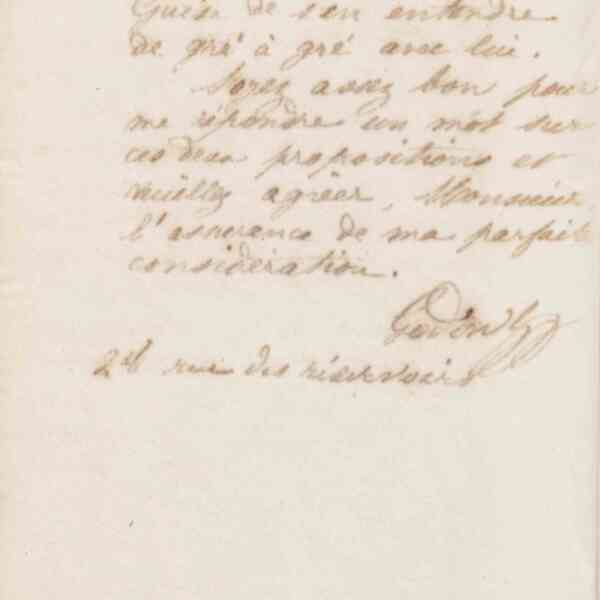 Guise de s'en entendre
de gré à gré avec lui.
Soyez assez bon pour
me répondre un mot sur
ces deux propositions et
veuillez agréer, Monsieur
l'assurance de ma parfaite
considération.
Godin
rue des réservoirs